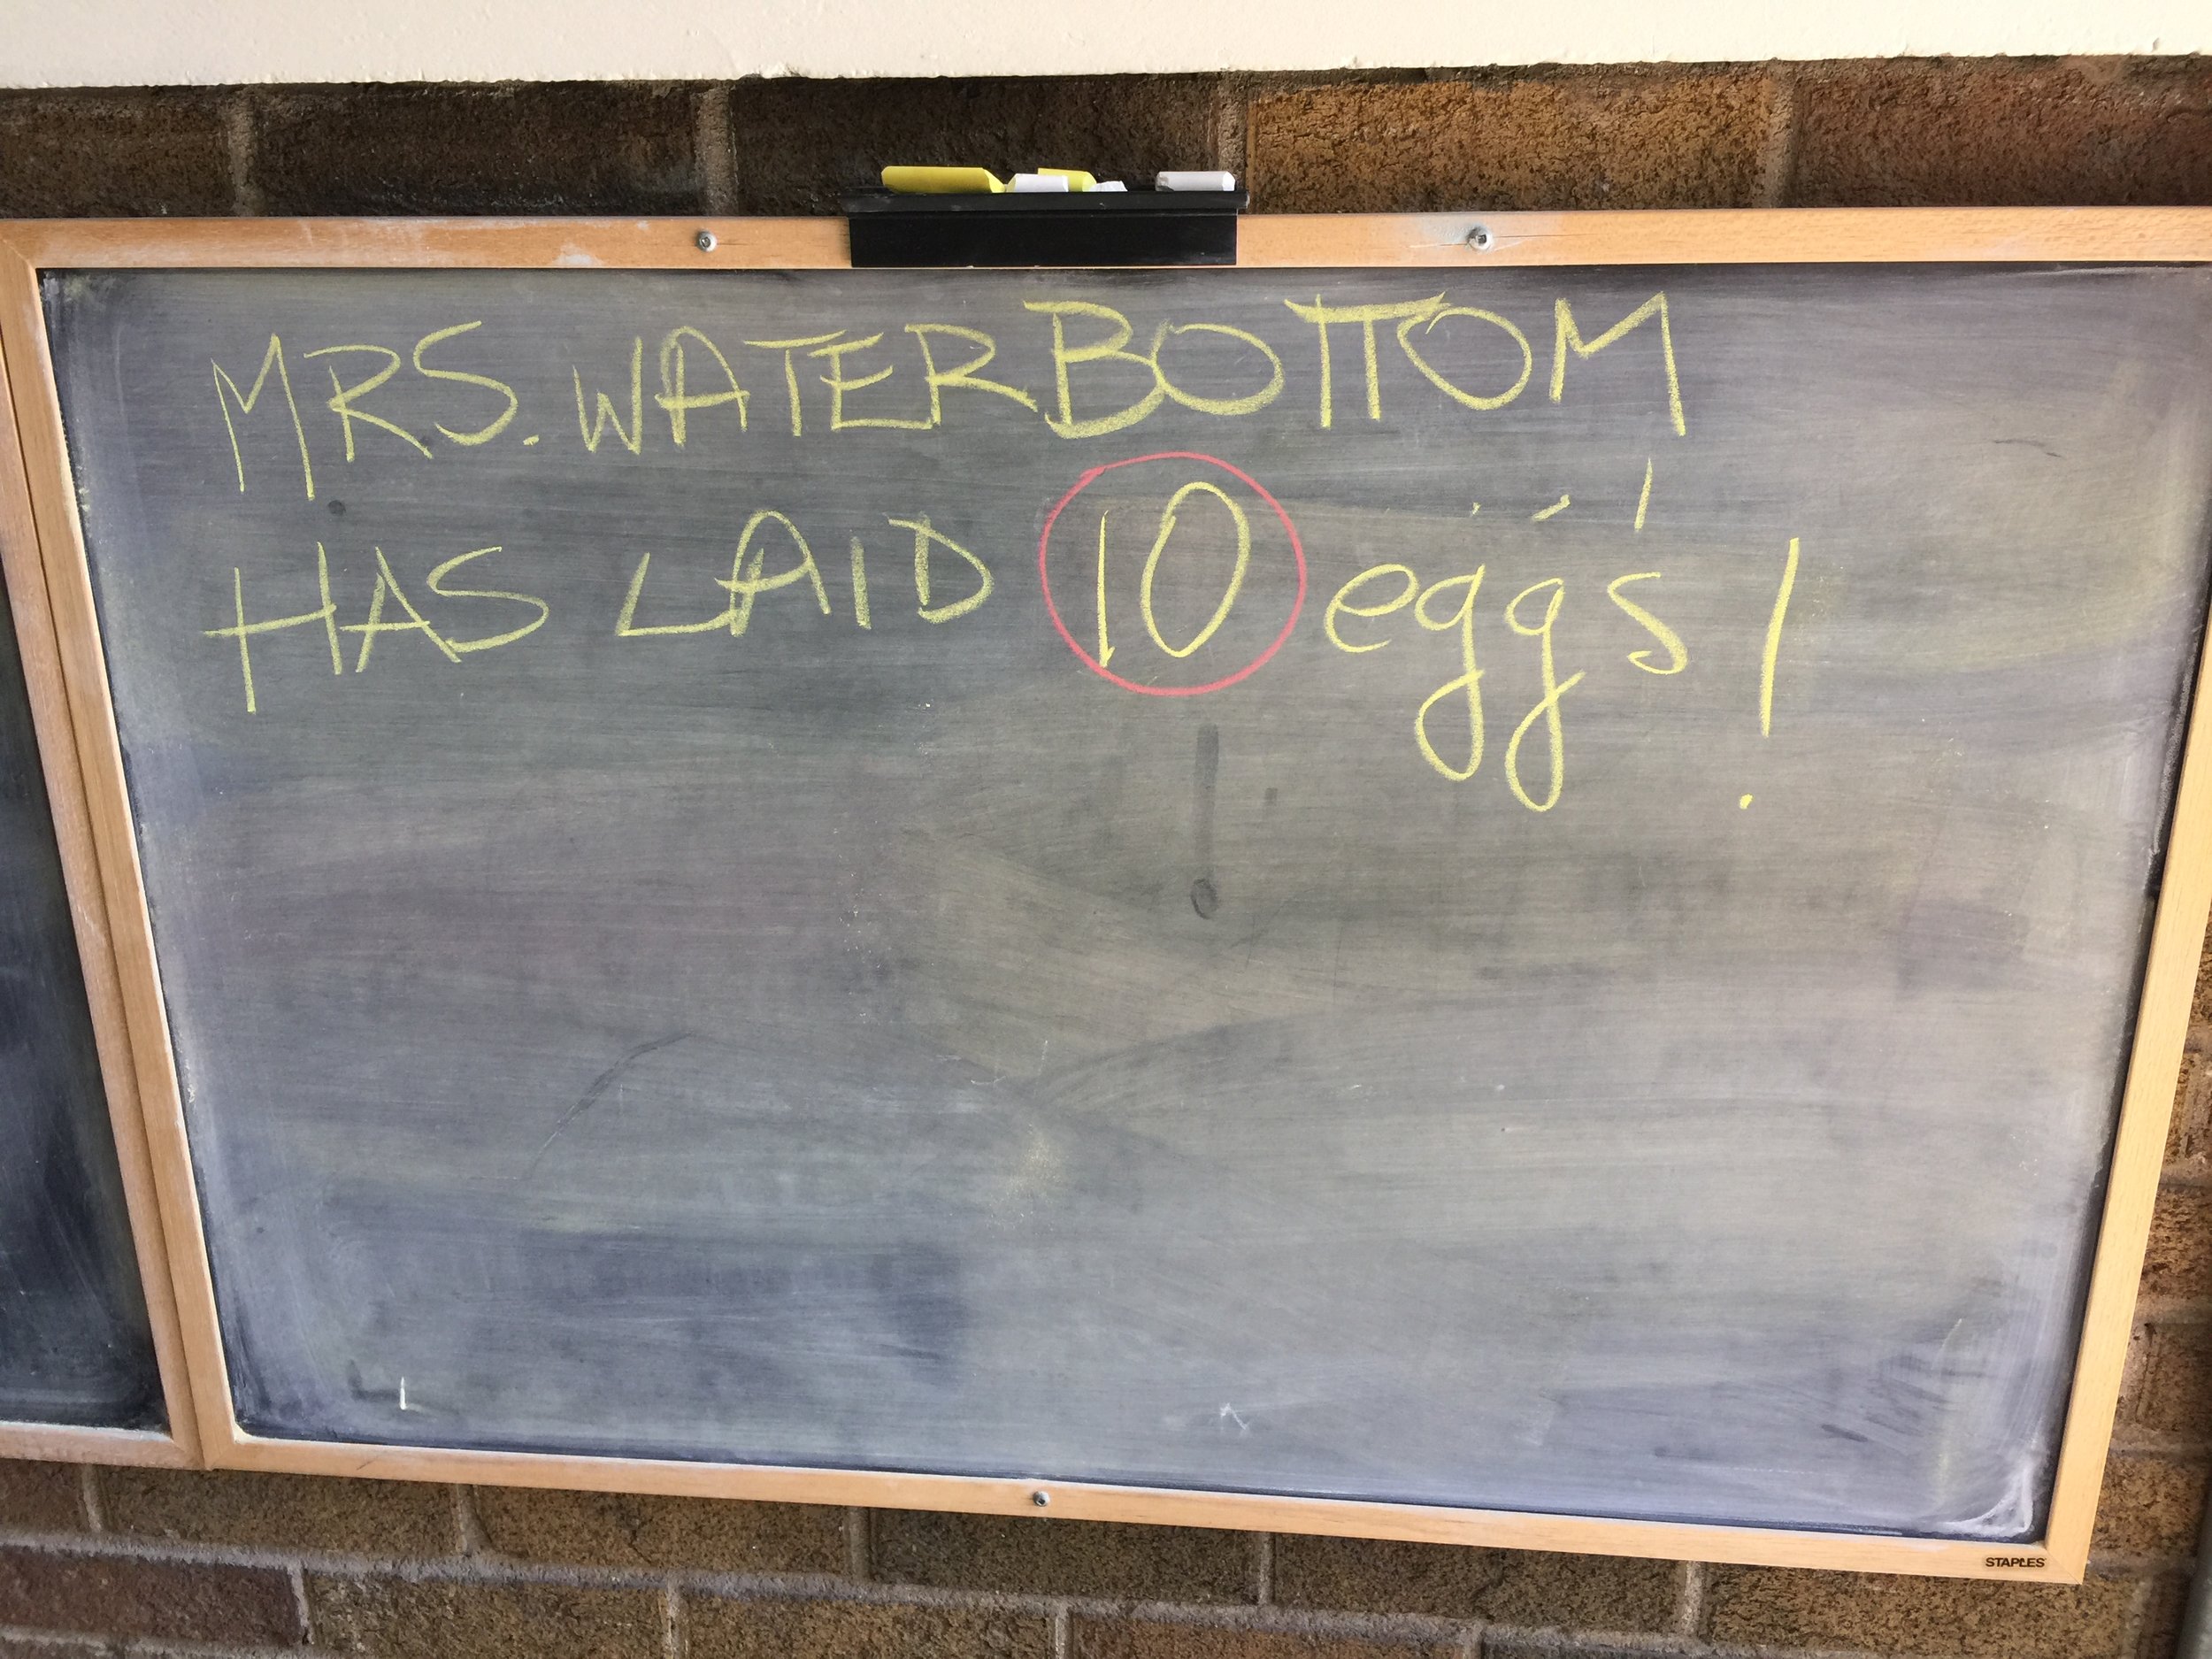 MRS. WATERBOTTOM
HAS LAID 10 eggs!
STAPLES